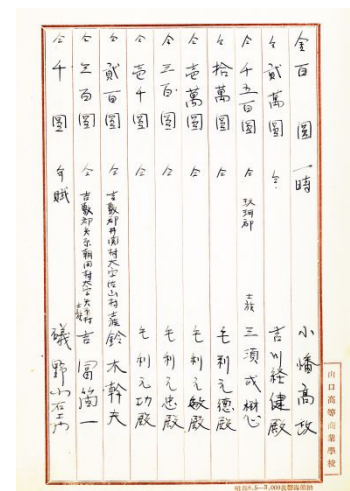 金百圓 一時 小幡高政
仝貳萬圓 仝 吉川経健殿
仝千五百圓 仝 玖珂郡 士族 三須成樹
仝拾萬圓 仝 毛利元德殿
仝壱萬圓 仝 毛利元敏殿
仝三百圓 仝 毛利元忠殿
仝壱千圓 仝 毛利元功殿
仝貳百圓 仝 吉敷郡井関村大字佐山村 士族 鈴木幹夫
仝三百圓 仝 吉敷郡 朝田村大字 士族 吉冨簡一
仝千圓 年賦 礒野小右エ門
山口高等商業學校